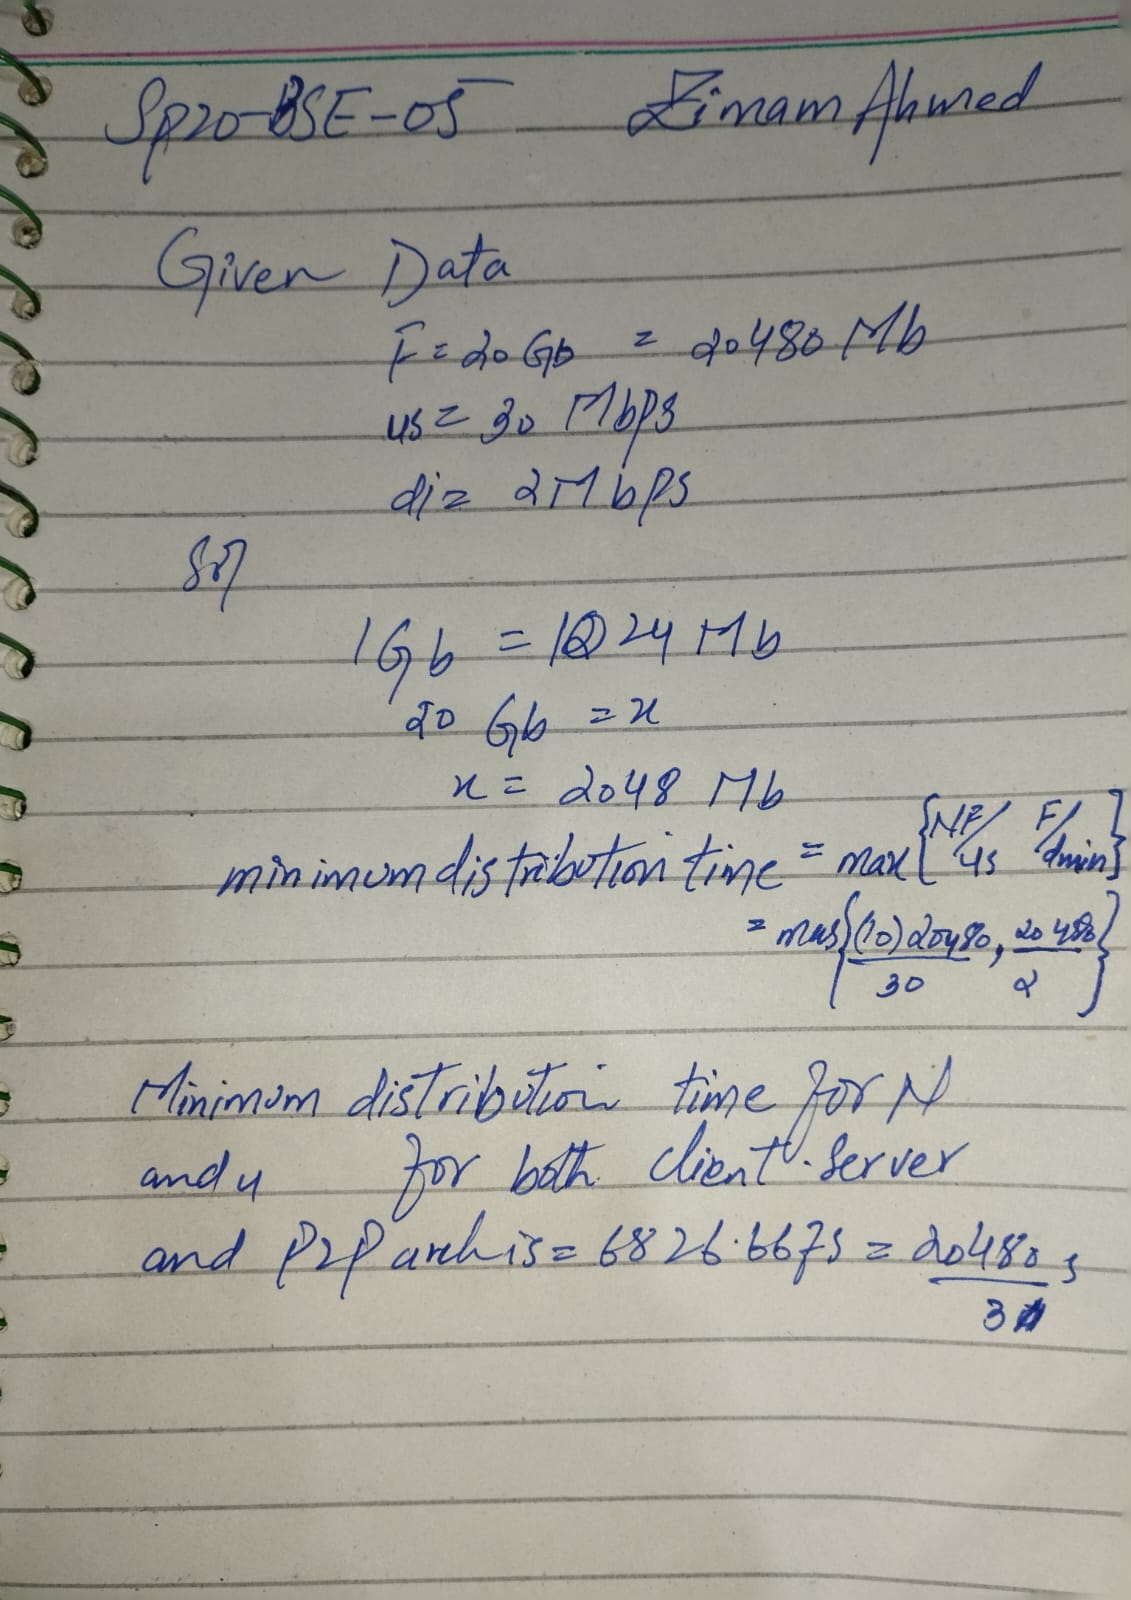 Sp20-BSE-05 Zimam Ahmed
Given Data
F = 20 Gb = 20480 Mb
us = 30 Mbps
di = 2 Mbps
Sol
1 Gb = 1024 Mb
20 Gb = x
x = 2048 Mb
minimum distribution time = max {NF/us F/dmin}
= max {(10)20480/30, 20480/2}
Minimum distribution time for N
and u for both client-server
and P2P arch is = 6826.667s = 20480/3 s